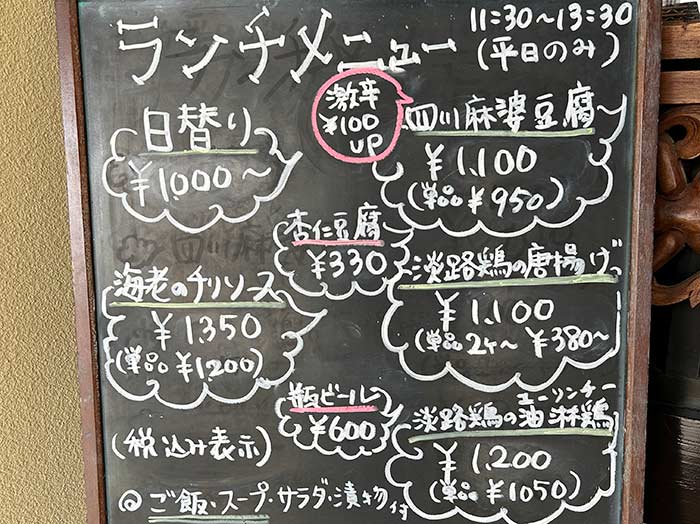 ランチメニュー
11:30~13:30
(平日のみ)
激辛
¥100
UP
日替り
¥1.000~
四川麻婆豆腐
¥1.100
(単品¥950)
杏仁豆腐
¥330
海老のチリソース
¥1.350
(単品¥1.200)
淡路鶏の唐揚げ
¥1.100
(単品2ケ~¥380~)
瓶ビール
¥600
ユーリンチー
淡路鶏の油淋鶏
¥1.200
(単品¥1050)
(税込み表示)
◎ご飯・スープ・サラダ・漬物付